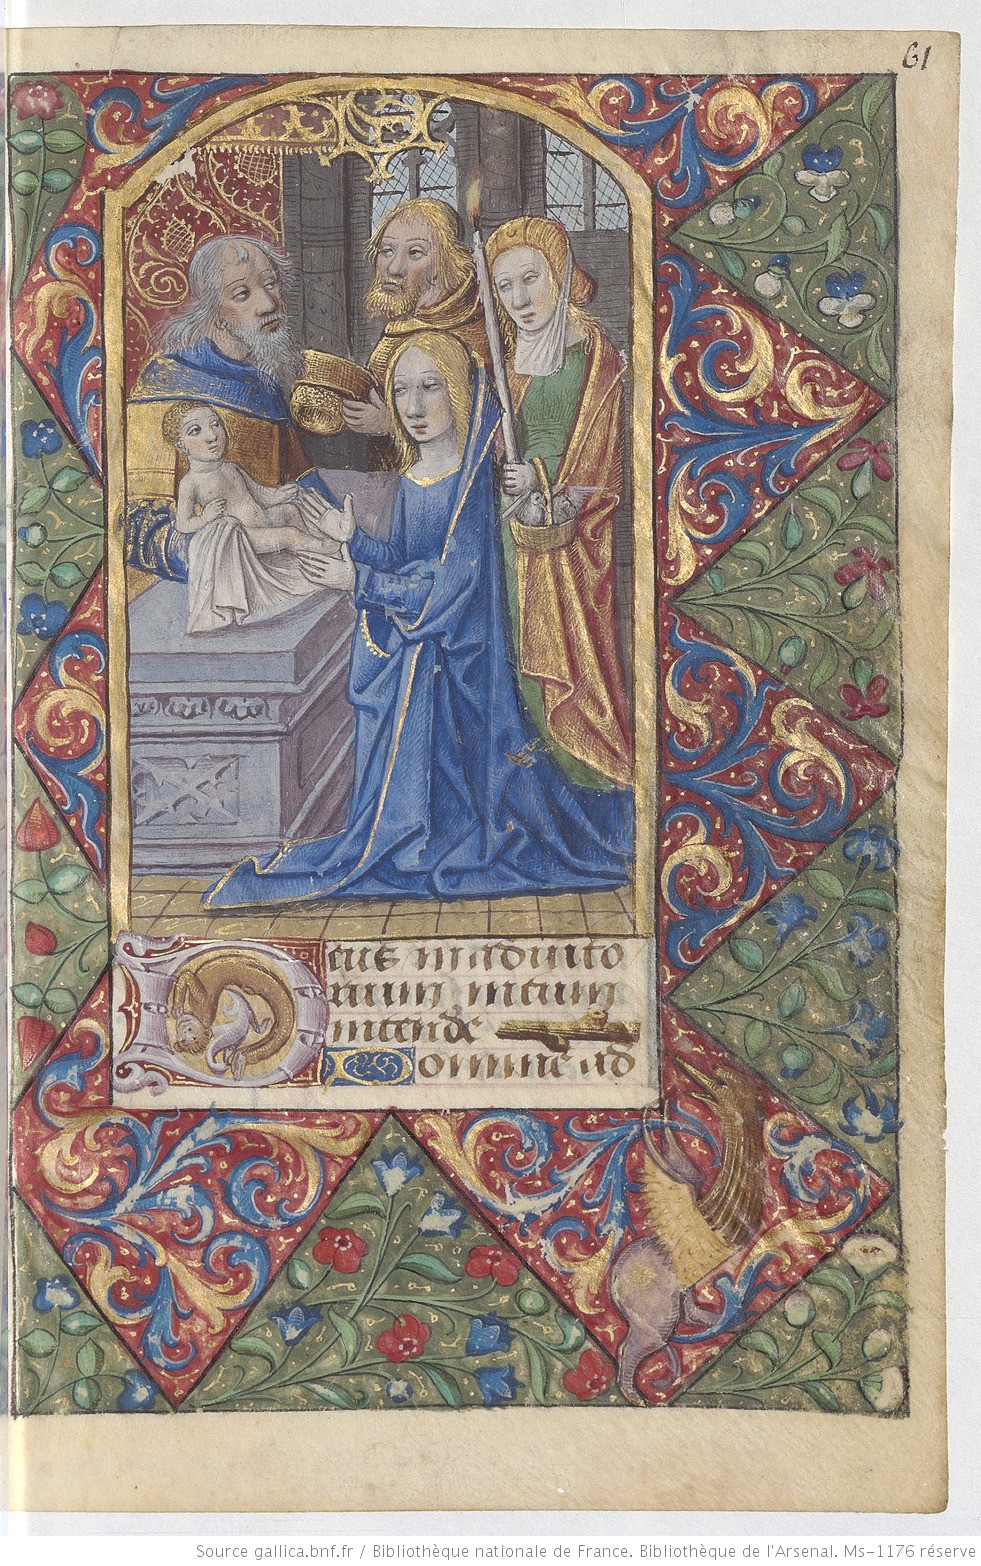 61
Deus in adiuto
rium meum
intende
Domine ad
Source gallica.bnf.fr / Bibliothèque nationale de France. Bibliothèque de l'Arsenal. Ms-1176 réserve